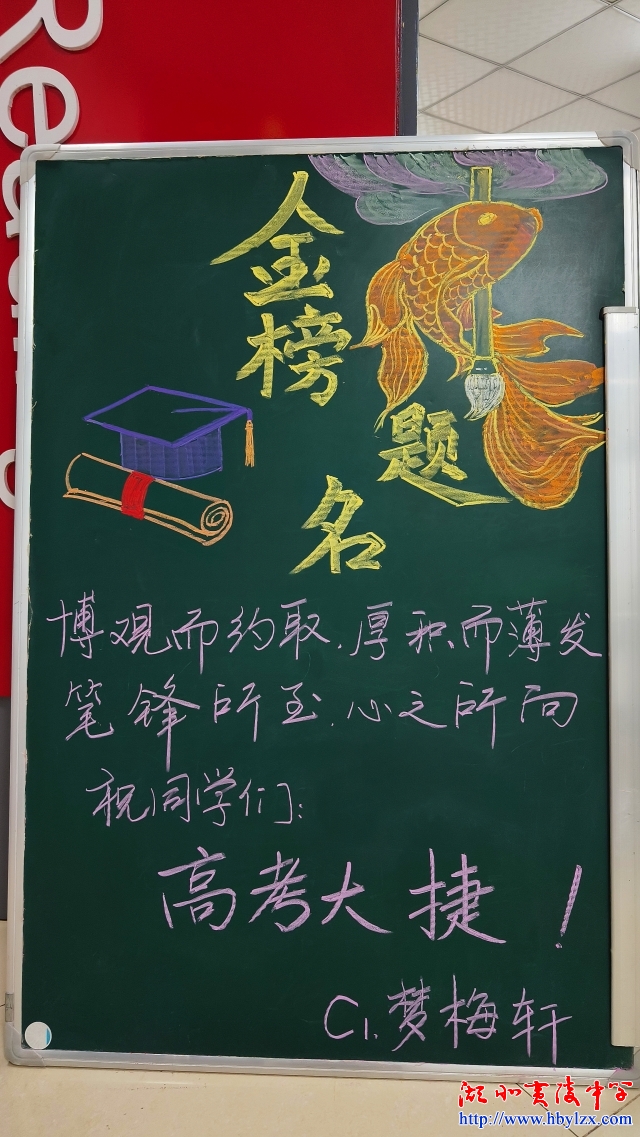 金榜题名
博观而约取.厚积而薄发
笔锋所至.心之所向
祝同学们:
高考大捷!
C1.梦梅轩
湖北夷陵中学
http://www.hbylzx.com